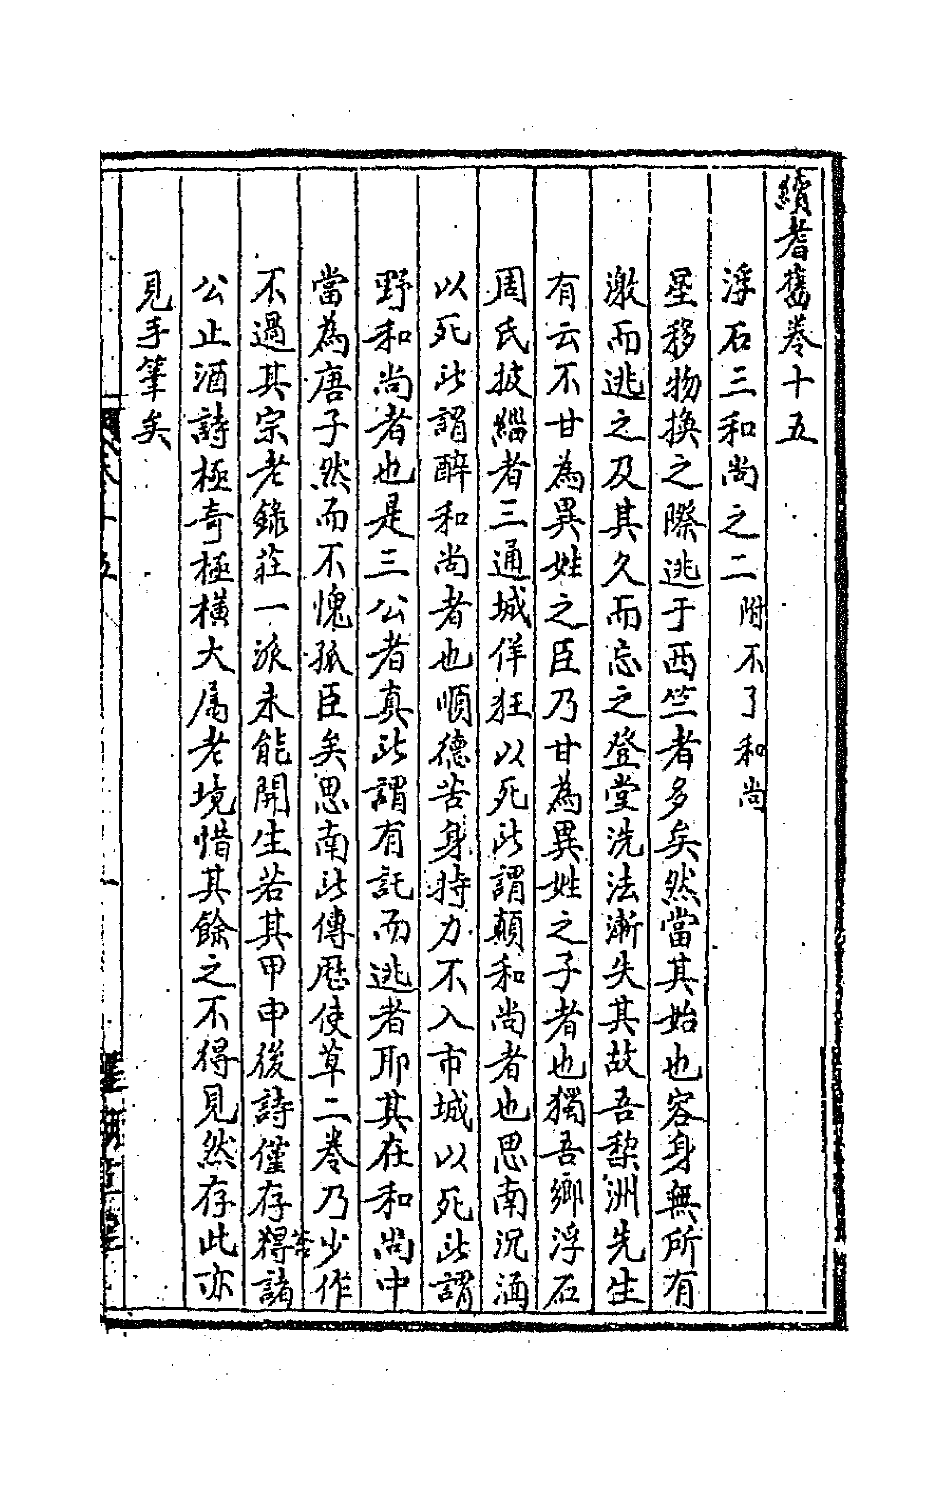 續耆舊卷十五
浮石三和尚之二附不了和尚
星移物換之際逃于西竺者多矣然當其始也容身無所有
激而逃之及其久而忘之登堂洗法漸失其故吾棃洲先生
有云不甘為異姓之臣乃甘為異姓之子者也獨吾鄉浮石
周氏披緇者三通城佯狂以死此謂顛和尚者也思南沉湎
以死此謂醉和尚者也順德苦身持力不入市城以死此謂
野和尚者也是三公者真此謂有託而逃者耶其在和尚中
當為唐子然而不愧孤臣矣思南此傳厯使草二卷乃少作
不過其宗老錄莊一派未能開生若其甲申後詩僅存得諸
公止酒詩極奇極橫大屬老境惜其餘之不得見然存此亦
見手筆矣